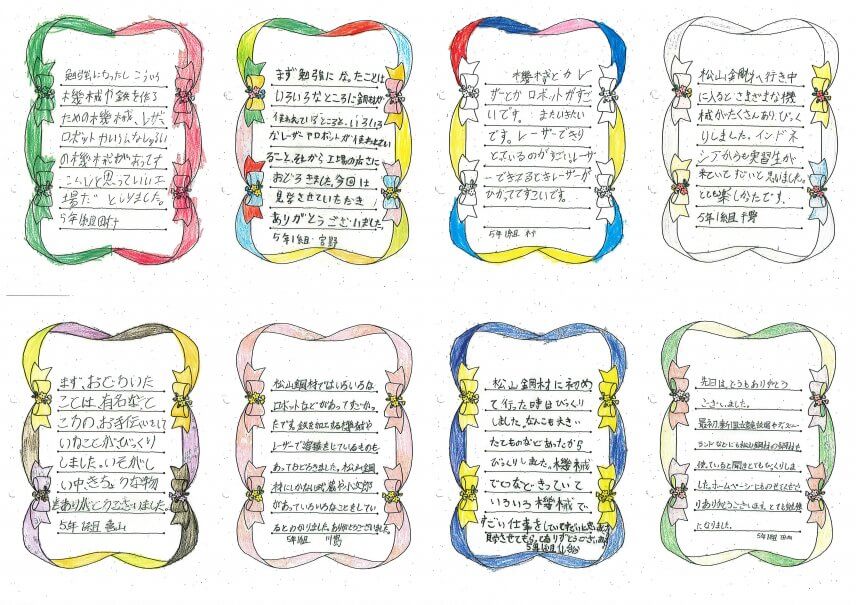 勉強になったし こういう
機械や鉄を作る
ための機械、レーザー
ロボットやいろんなしゅるい
の機械があって
思っていい工
場だ としりました。
5年1組
まず勉強になったことは
いろいろなところに鋼材が
使われているところと、いろいろ
なレーザーやロボットが使われてい
ること、それから工場の広さに
おどろきました。今回は
見学させていただき
ありがとうございました。
5年1組 宮野
機械とかレー
ザーとかロボットがすご
いです。またいきたい
です。レーザーできり
とっているのがすごいレーザ
ーできってるときレーザーが
ひかっててすごいです。
5年1組
松山金剛へ行き中
に入るとさまざまな機
械がたくさんありびっく
りしました。インドネ
シアからも実習生が
来ていてすごいと思いました。
とても楽しかったです。
5年1組
まず、おどろいた
ことは、有名な
お手伝いをして
いたことがびっくり
しました。いそがし
い中、きちょうな物
ありがとうございました。
5年1組 亀山
松山鋼材ではいろいろな
ロボットなどがあってすごかっ
たです。鉄を加工する機械や
レーザーで溶接をしているものも
あっておどろきました。松山鋼
材にしかない武蔵や小次郎
があっていろいろなことをしてい
るとわかりました。ありがとうございました。
5年1組
松山鋼材に初め
て行った時はびっくり
しました。なんこも大きい
たてものなどあったから
びっくりしました。機械
でてつなどきっていて
いろいろ機械で、
すごい仕事をしていてすごいと思
見学させてもらってありがとうございま
5年1組
先日は、どうもありがとう
ございました。
最初、新国立競技場やディズニー
ランドなどにも松山鋼材の鋼材を
使っていると聞きとてもびっくりしま
した。ホームページにものせてくださ
りありがとうございます。とても勉強
になりました。
5年1組